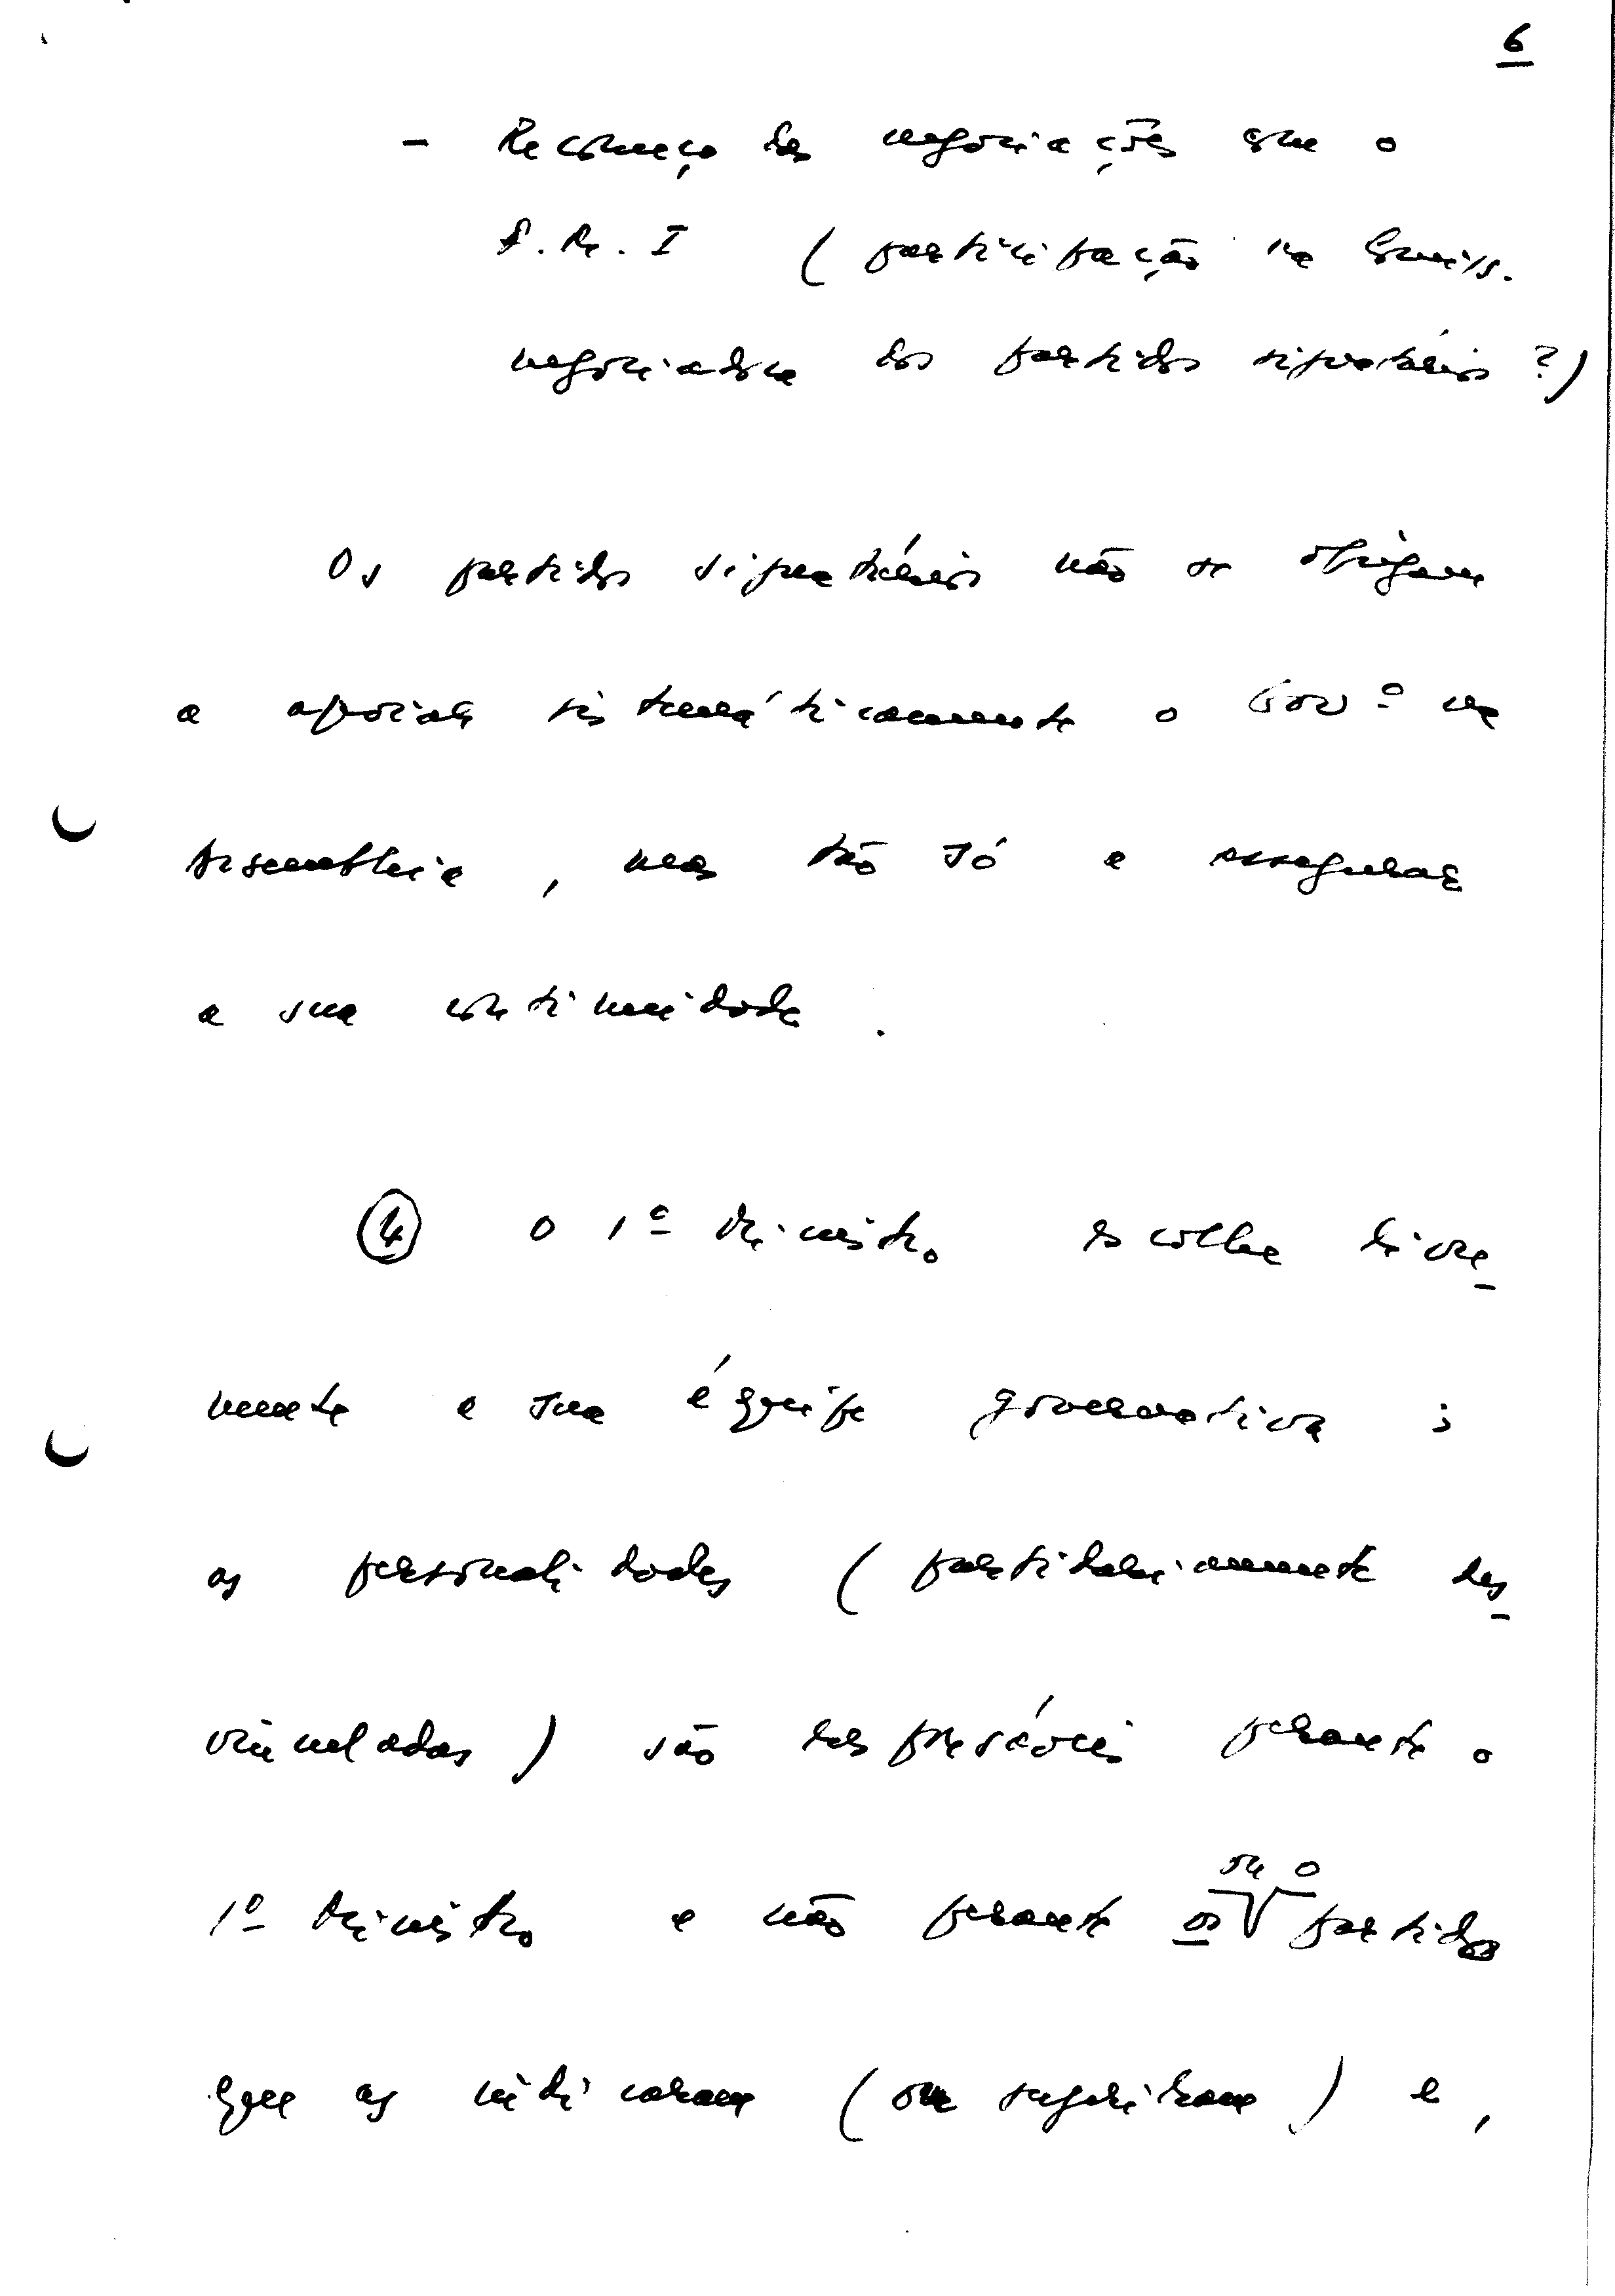 6
- Recomeço das negociações com o
F.M.I (participação na Comiss.
negociadora dos partidos signatários ?)
Os partidos signatários não se obrigam
a apoiar sistemáticamente o Govº na
Assembleia, mas tão só a assegurar
a sua continuidade.
④ O 1º Ministro escolhe livre-
mente a sua équipe governativa ;
as personalidades (partidariamente des-
vinculadas) são responsáveis perante o
ou o
1º Ministro e não perante os partidos
que as indicaram (ou sugeriram) e,